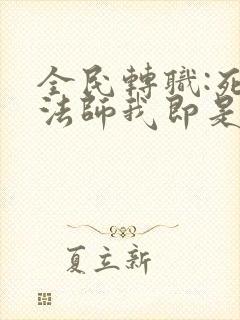 全民轉職:死
法師我即是
夏立新